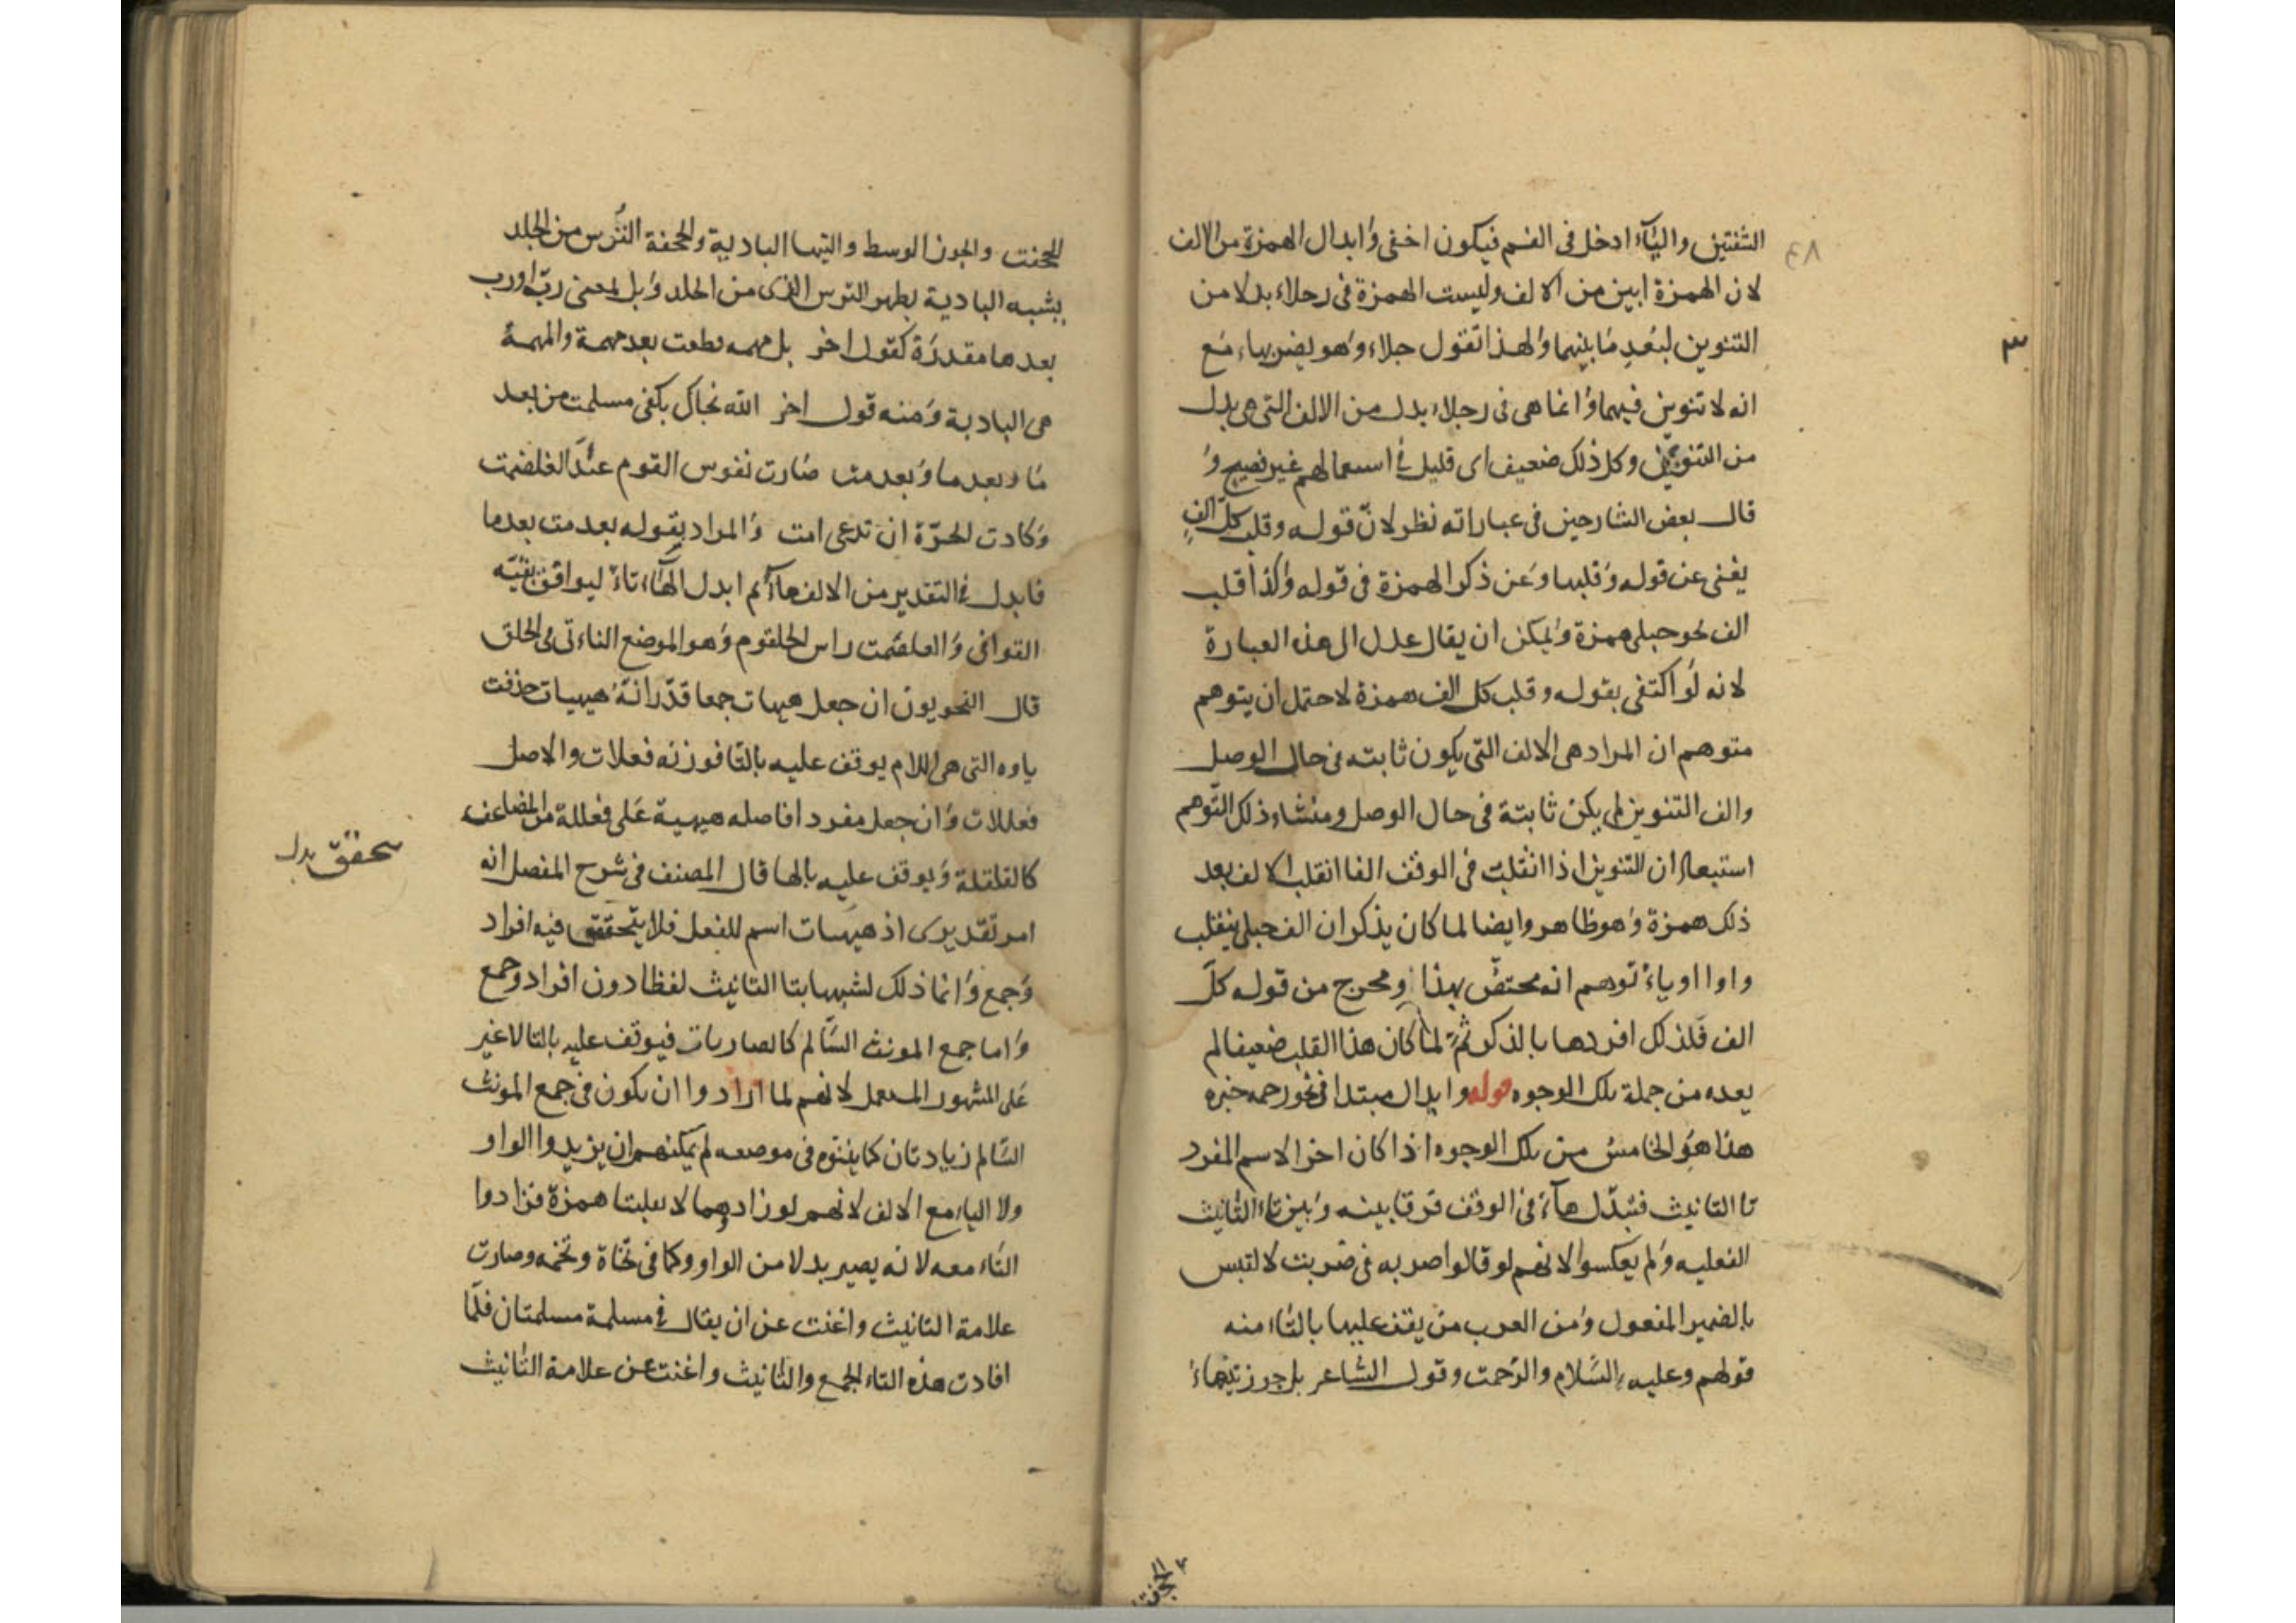 الشفتين والياء ادخل فى الفم فيكون اخفى وابدال الهمزة من الالف
لان الهمزة ابين من الالف وليست الهمزة فى رجلاء بدلا من
التنوين لبعد ما بينهما ولهذا تقول حبلاء وهو يضربهاء مع
انه لا تنوين فيهما وانما هى فى رجلاء بدل من الالف التى هى بدل
من التنوين وكل ذلك ضعيف اى قليل فى استعمالهم غير فصيح و
قال بعض الشارحين فى عباراته نظر لانّ قوله وقلب كلّ الفٍ
يغنى عن قوله وقلبها وعن ذكر الهمزة فى قوله وكذا قلب
الف نحو حبلى همزة ويمكن ان يقال عدل الى هذه العبارة
لانه لو اكتفى بقوله وقلب كل الف همزة لاحتمل ان يتوهم
متوهم ان المراد هى الالف التى يكون ثابته فى حال الوصل
والف التنوين لم يكن ثابتة فى حال الوصل ومنشاء ذلك التوهم
استبعاد ان التنوين اذا انقلبت فى الوقف الفا انقلب الالف بعد
ذلك همزة وهو ظاهر وايضا لما كان يذكر ان الف حبلى ينقلب
واوا اوياء توهم انه مختصّ بهذا ومخرج من قوله كلّ
الف فلذلك افردها بالذكر ثمّ لما كان هذا القلب ضعيفا لم
يعده من جملة تلك الوجوه قوله وابدال مبتدا فى نحو رحمه خبره
هذا هو الخامس من تلك الوجوه اذا كان اخر الاسم المفرد
تا التانيث فتبدّل هآء فى الوقف فرقا بينه وبين تاء التانيث
الفعليه ولم يعكسوا لانهم لو قالوا ضربه فى ضربت لالتبس
بالضمير المفعول ومن العرب من يقف عليها بالتاء منه
قولهم وعليه السّلام والرّحمت وقول الشاعر بل جوز تيهاء
٤٨
٣
الجحفت
الجحفت والجوز الوسط والتيها البادية والجحفة التّرس من الجلد
يشبه البادية بظهر الترس الذى من الجلد وبل بمعنى ربّ اورب
بعدها مقدرة كقول اخر بل مهمه قطعت بعد مهمة والمهمة
هى البادية ومنه قول اخر الله نجاك بكفى مسلمت من بعد
ما وبعد ما وبعد مت صارت نفوس القوم عند الغلصمت
وكادت الحرّة ان تدعى امت والمراد بقوله بعد مت بعد ما
فابدل فى التقدير من الالف هآء ثم ابدل الهآء تاء ليوافق بقيّه
القوافى والغلصمت راس الحلقوم وهو الموضع الناءتى فى الحلق
قال النحويون ان جعل هيهات جمعا قدّر انّه هيهيات حذفت
ياوه التى هى اللام يوقف عليه بالتا فوزنه فعلات والاصل
فعللات وان جعل مفردا فاصله هيهية على فعللة من المضاعف
كالقلقلة ويوقف عليه بالها قال المصنف فى شرح المفصل انه
امر تقديرى اذ هيهات اسم للفعل فلا يتحقق فيه افراد
وجمع وانما ذلك لشبهها بتا التانيث لفظا دون افراد وجمع
واما جمع المونث السّالم كالضاربات فيوقف عليه بالتا لا غير
على المشهور المستعمل لانهم لما ارادوا ان يكون فى جمع المونث
السّالم زيادتان كما بيّنوه فى موضعه لم يمكنهم ان يزيدوا الواو
ولا الياء مع الالف لانهم لو زادوهما لانقلبتا همزة فزادوا
التاء معه لانه يصير بدلا من الواو وكما فى تخاة وتخمه وصارت
علامة التانيث واغنت عن ان يقال فى مسلمة مسلمتان فلمّا
افادت هذه التاء الجمع والتانيث واغنت عن علامة التانيث
يتحقق بدل